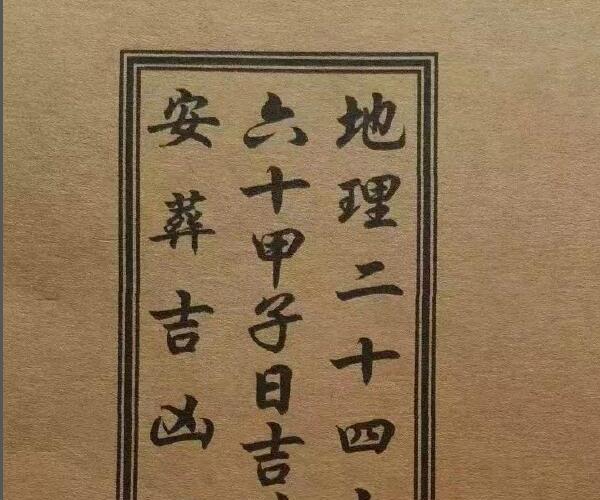 地理二十四
六十甲子日吉
安葬吉凶